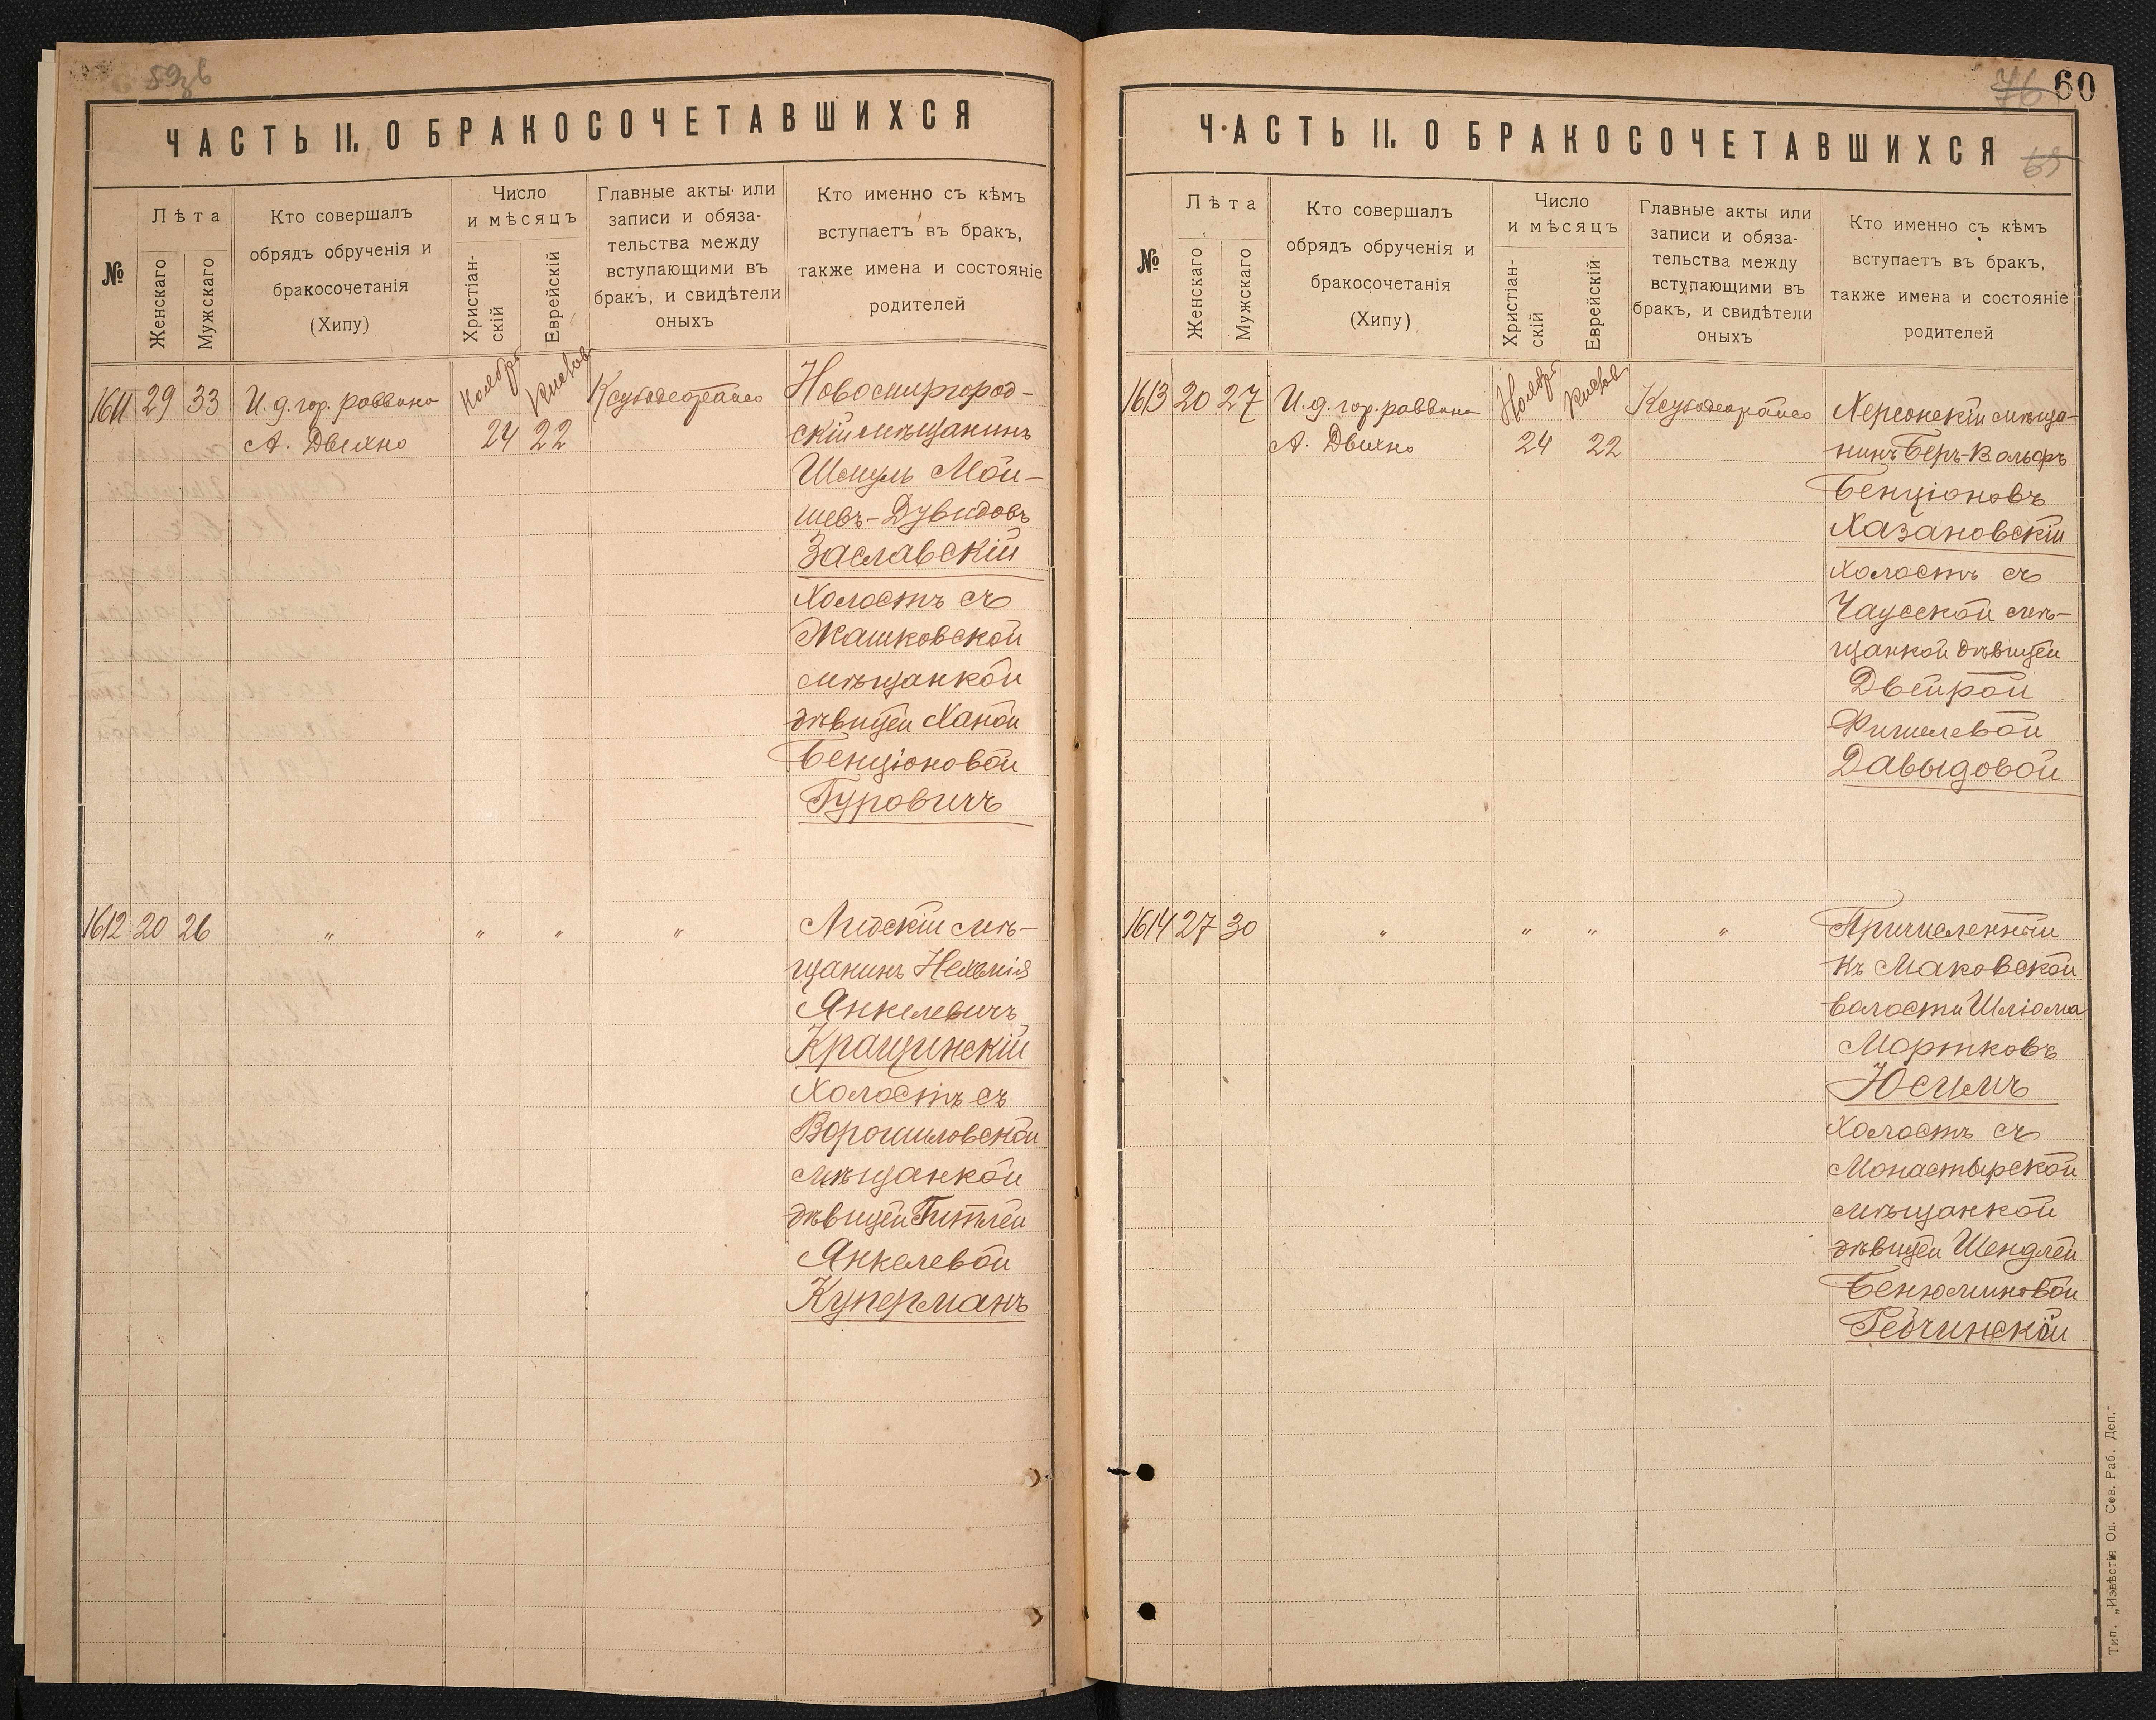 59об
ЧАСТЬ II. О БРАКОСОЧЕТАВШИХСЯ
№
Лѣта
Женскаго
Мужскаго
Кто совершалъ
обрядъ обрученія и
бракосочетанія
(Хипу)
Число
и мѣсяцъ
Христіан-
скій
Еврейскій
Главные акты или
записи и обяза-
тельства между
вступающими въ
бракъ, и свидѣтели
оныхъ
Кто именно съ кѣмъ
вступаетъ въ бракъ,
также имена и состояніе
родителей
1611 29 33 И.д. гор. раввина
А. Двихно
Ноября
24
Кислов
22
Новомиргород-
скій мѣщанинъ
Шмуль Мой-
шевъ-Дувидовъ
Заславскій
холостъ съ
Жашковской
мѣщанкой
дѣвицей Ханой
Бенціоновой
Гуровичъ
1612 20 26 " " " "
Лидскій мѣ-
щанинъ Нехемія
Янкелевичъ
Кращинскій
холостъ съ
Ворошиловской
мѣщанкой
дѣвицей Гитлей
Янкелевой
Куперманъ
76 60
ЧАСТЬ II. О БРАКОСОЧЕТАВШИХСЯ
69
№
Лѣта
Женскаго
Мужскаго
Кто совершалъ
обрядъ обрученія и
бракосочетанія
(Хипу)
Число
и мѣсяцъ
Христіан-
скій
Еврейскій
Главные акты или
записи и обяза-
тельства между
вступающими въ
бракъ, и свидѣтели
оныхъ
Кто именно съ кѣмъ
вступаетъ въ бракъ,
также имена и состояніе
родителей
1613 20 27 И.д. гор. раввина
А. Двихно
Ноября
24
Кислов
22
Херсонскій мѣща-
нинъ Беръ-Вольфъ
Бенціоновъ
Хазановскій
холостъ съ
Чаусской мѣ-
щанкой дѣвицей
Двейрой
Фишелевой
Давыдовой
1614 27 30 " " " "
Причисленный
къ Маковской
волости Шліома
Мортковъ
Юсимъ
холостъ съ
Монастырской
мѣщанкой
дѣвицей Шендлей
Бенюминовой
Гедчинской
Тип. „Извѣстія Од. Сов. Раб. Деп."